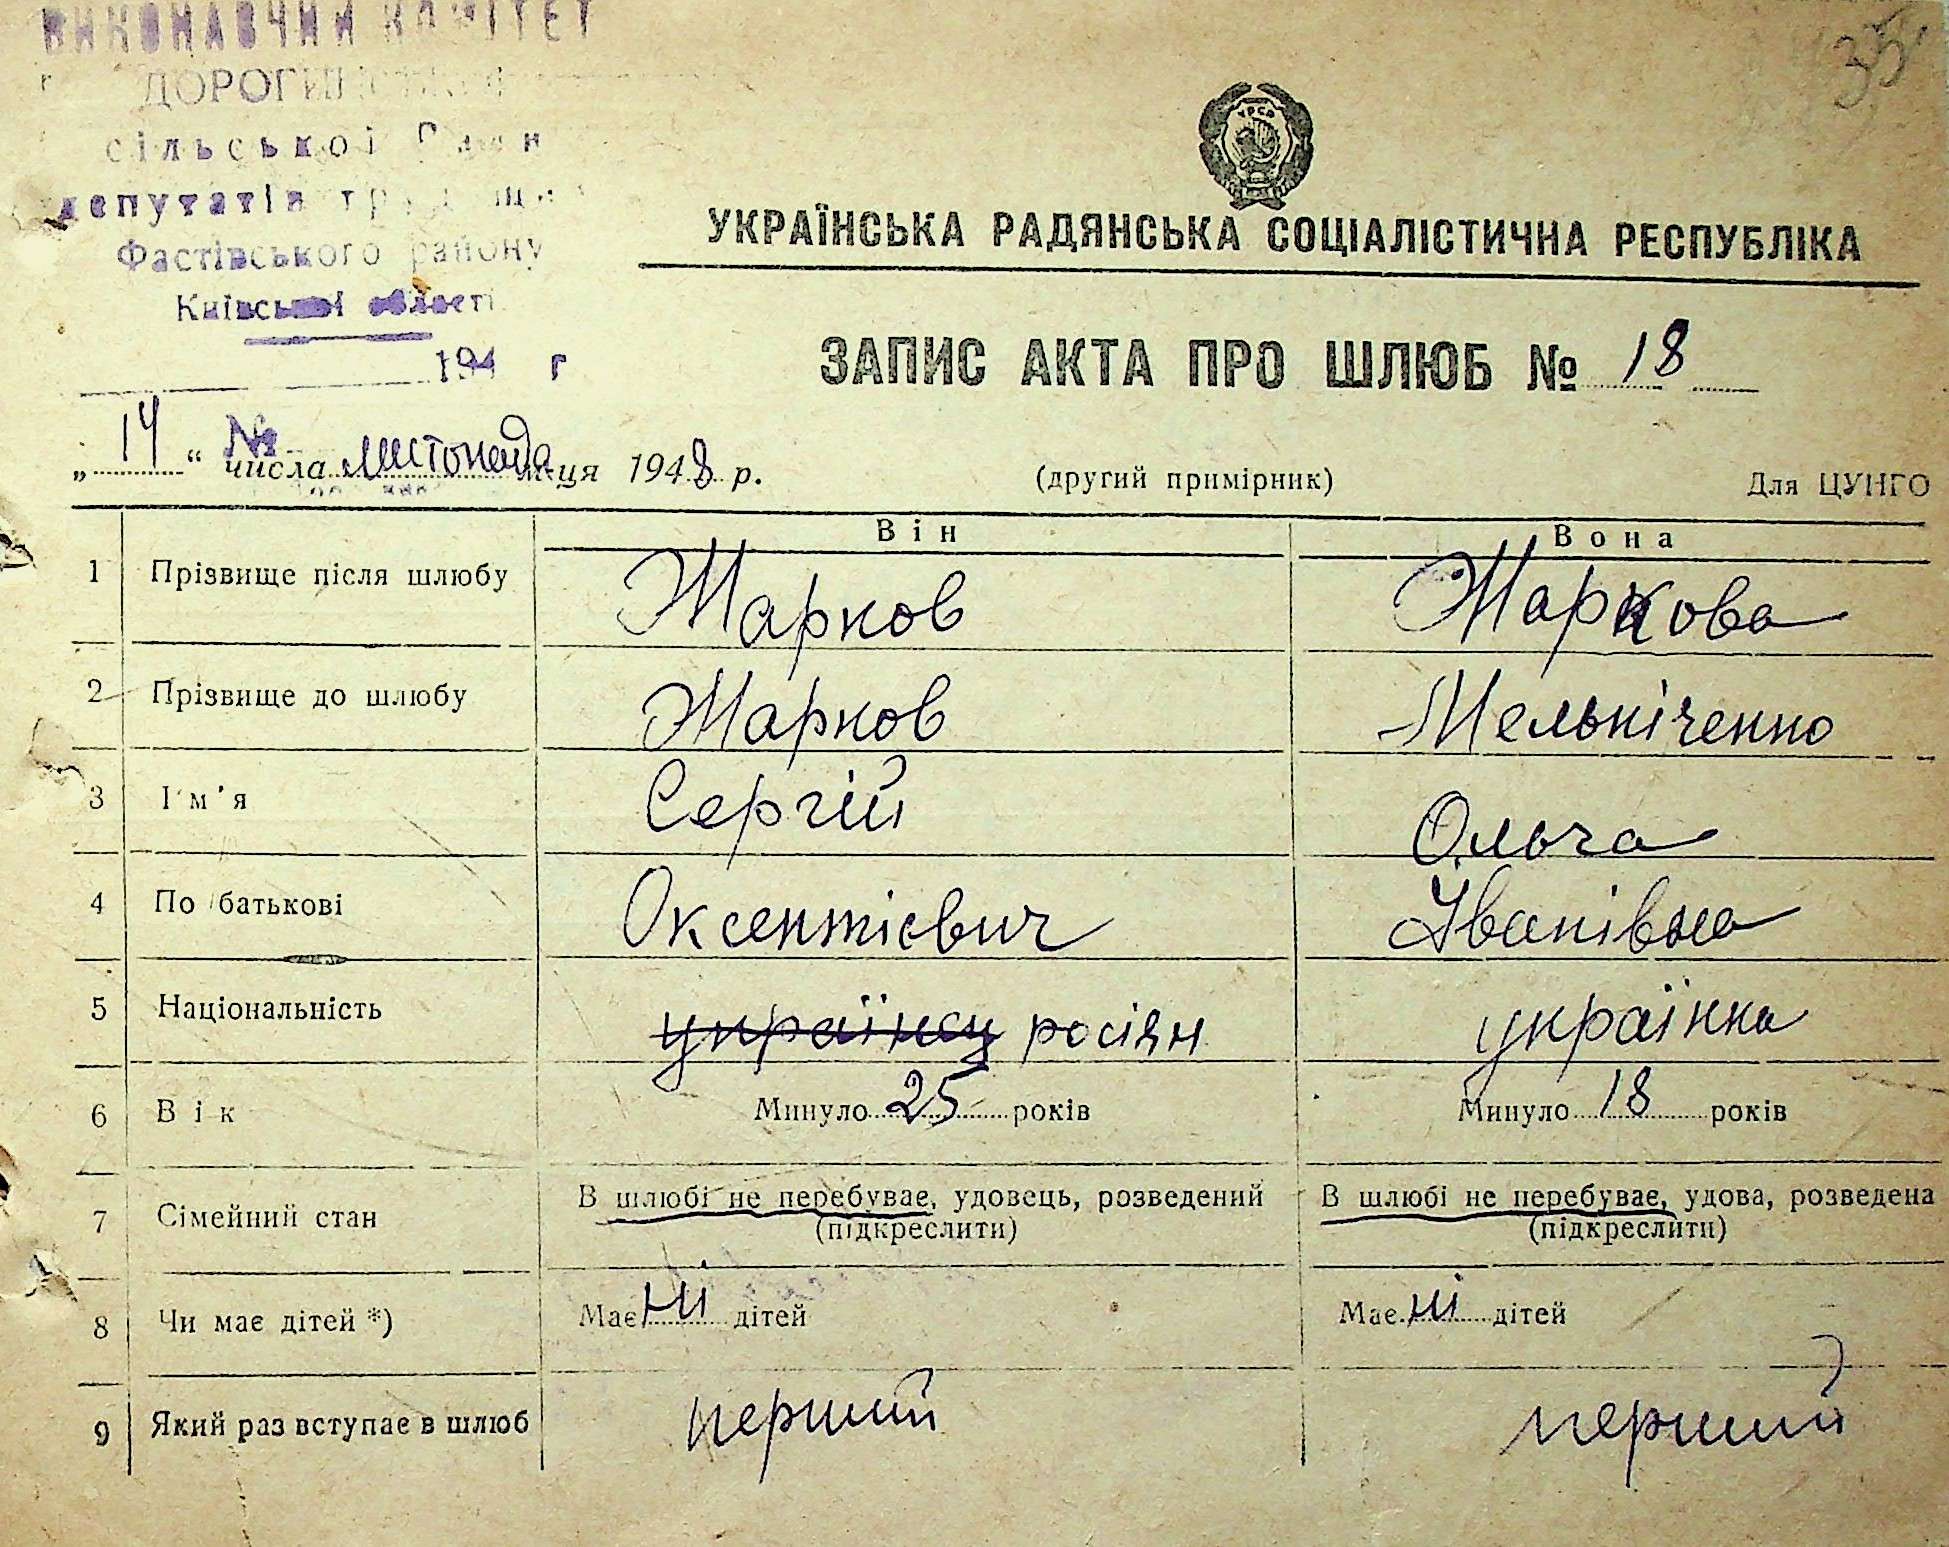 ВИКОНАВЧИЙ КОМІТЕТ
35
сільської Ради
депутатів
Фастівського району
Київської області
194 г
УРСР
УКРАЇНСЬКА РАДЯНСЬКА СОЦІАЛІСТИЧНА РЕСПУБЛІКА
ЗАПИС АКТА ПРО ШЛЮБ № 18
№
„14“ числа листопада м-ця 1948 р. (другий примірник) Для ЦУНГО
Він Вона
1 Прізвище після шлюбу Жарков Жаркова
2 Прізвище до шлюбу Жарков Мельніченко
3 Ім'я Сергій Ольга
4 По батькові Оксентієвич Іванівна
5 Національність українец росіян українка
6 Вік Минуло 25 років Минуло 18 років
7 Сімейний стан В шлюбі не перебуває, удовець, розведений (підкреслити) В шлюбі не перебуває, удова, розведена (підкреслити)
8 Чи має дітей *) Має ні дітей Має ні дітей
9 Який раз вступає в шлюб перший перший